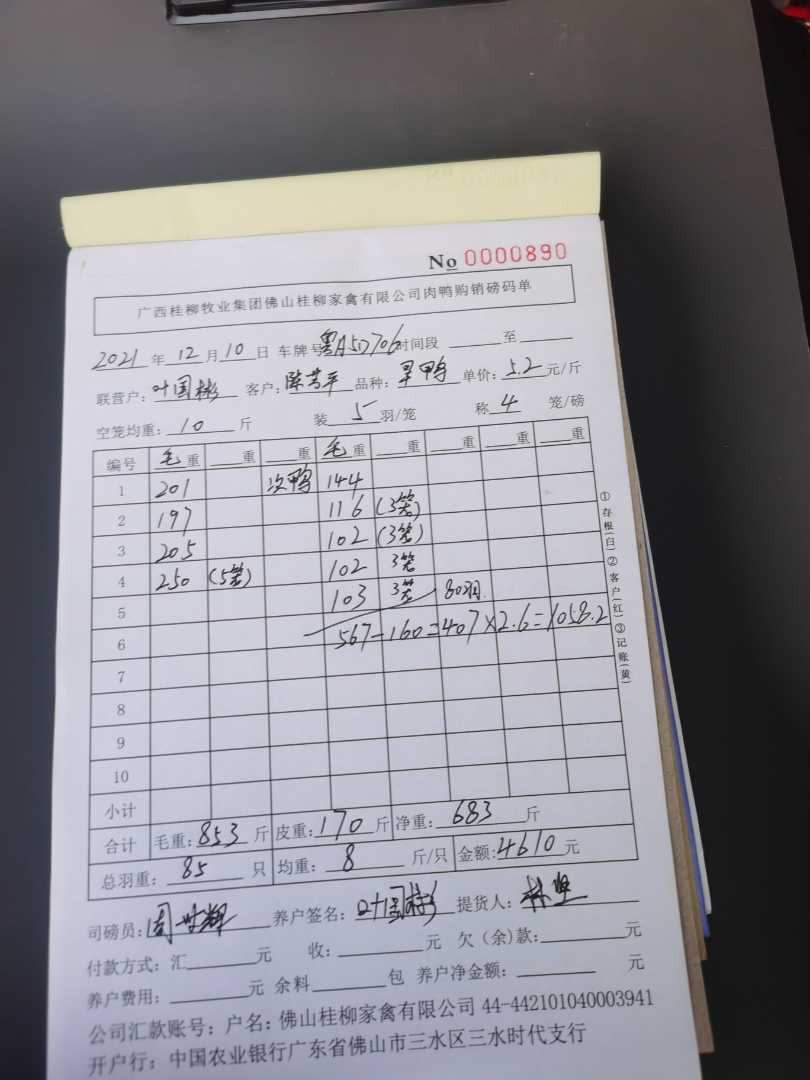 No 0000890
广西桂柳牧业集团佛山桂柳家禽有限公司肉鸭购销磅码单
2021 年 12 月 10 日 车牌号 粤A5D706 时间段 至
联营户: 叶国彬 客户: 陈芳平 品种: 旱鸭 单价: 5.2 元/斤
空笼均重: 10 斤 装 5 羽/笼 称 4 笼/磅
编号 毛重 重 重 毛重 重 重 重 重
1 201 次鸭 144
2 197 116 (3笼)
3 205 102 (3笼)
4 250 (5笼) 102 3笼
5 103 3笼 80羽
6 567-160=407×2.6=1058.2
7
8
9
10
小计
合计 毛重: 853 斤 皮重: 170 斤 净重: 683 斤
总羽重: 85 只 均重: 8 斤/只 金额: 4610 元
司磅员: 周 辉 养户签名: 叶国彬 提货人: 林
付款方式: 汇 元 收: 元 欠(余)款: 元
养户费用: 元 余料 包 养户净金额: 元
公司汇款账号: 户名: 佛山桂柳家禽有限公司 44-442101040003941
开户行: 中国农业银行广东省佛山市三水区三水时代支行
①存根(白)②客户(红)③记账(黄)